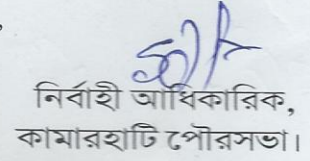 নির্বাহী আধিকারিক,
কামারহাটি পৌরসভা।